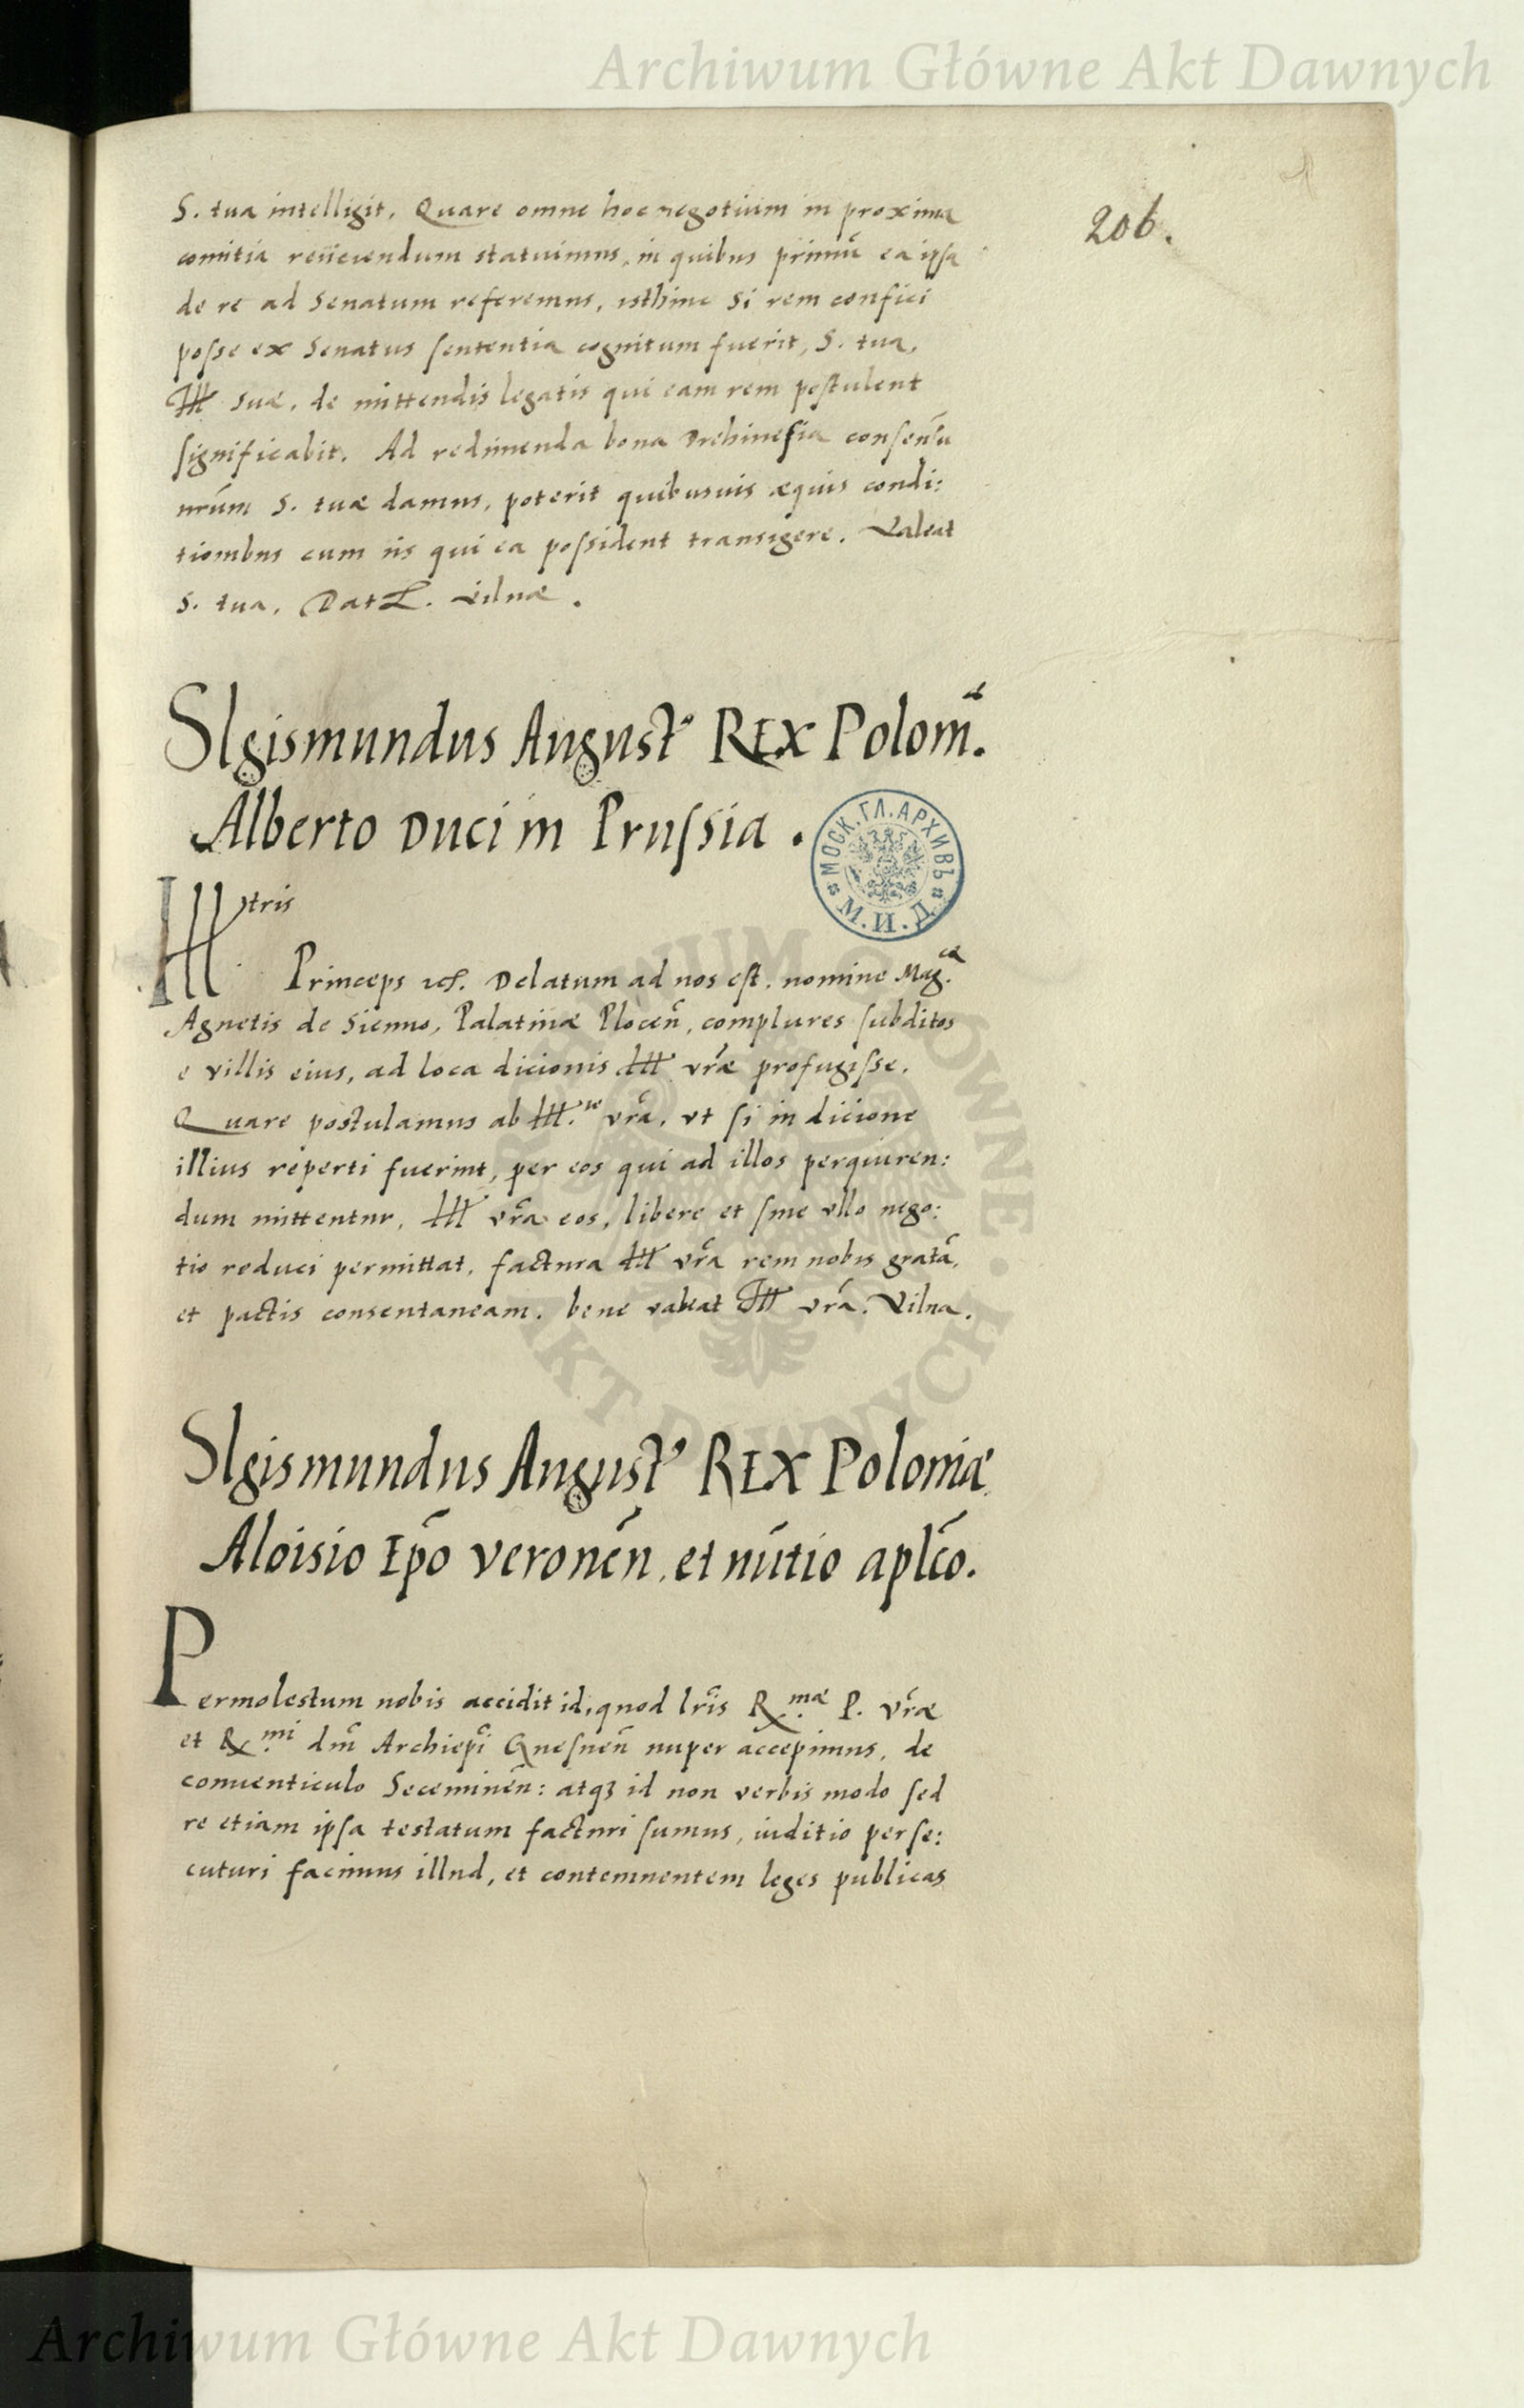 Archiwum Główne Akt Dawnych
206.
S. tua intelligit. Quare omne hoc negotium in proxima
comitia reiiciendum statuimus, in quibus primũ ea ipsa
de re ad Senatum referemus, isthinc si rem confici
posse ex Senatus sententia cognitum fuerit, S. tua,
Ill suæ, de mittendis legatis qui eam rem postulent
significabit. Ad redimenda bona consensũ
nrũm S. tuæ damus, poterit quibusuis æquis condi:
tionibus cum iis qui ea possident transigere. Valeat
S. tua, Dat. Vilnæ.
SIgismundus August9 REX Poloniæ.
Alberto Duci in Prussia.
МОСК. ГЛ. АРХИВЪ
М. И. Д.
Illtris
Princeps Delatum ad nos est, nomine Mag.cæ
Agnetis de Sienno, Palatinæ Plocen̄, complures subditos
e villis eius, ad loca dicionis Ill vr̃æ profugisse.
Quare postulamus ab Ill.te vr̃a, vt si in dicione
illius reperti fuerint, per eos qui ad illos perquiren:
dum mittentur, Ill vr̃a eos, libere et sine vllo nego:
tio reduci permittat, factura Ill vr̃a rem nobis gratã,
et pactis consentaneam. bene valeat Ill vr̃a. Vilna.
SIgismundus August9 REX Poloniæ
Aloisio Ep̃o Veronen̄, et nũtio apl̃co.
Permolestum nobis accidit id, quod lr̃is R.mæ P. vr̃æ
et R.mi dn̄i Archiep̃i Gnesnen̄ nuper accepimus, de
conuenticulo Seceminen̄: atq3 id non verbis modo sed
re etiam ipsa testatum facturi sumus, iuditio perse:
cuturi facinus illud, et contemnentem leges publicas
ARCHIWUM GŁÓWNE AKT DAWNYCH
Archiwum Główne Akt Dawnych